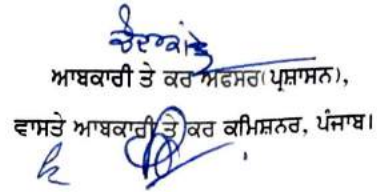 ਆਬਕਾਰੀ ਤੇ ਕਰ ਅਫਸਰ(ਪ੍ਰਸ਼ਾਸਨ),
ਵਾਸਤੇ ਆਬਕਾਰੀ ਤੇ ਕਰ ਕਮਿਸ਼ਨਰ, ਪੰਜਾਬ।